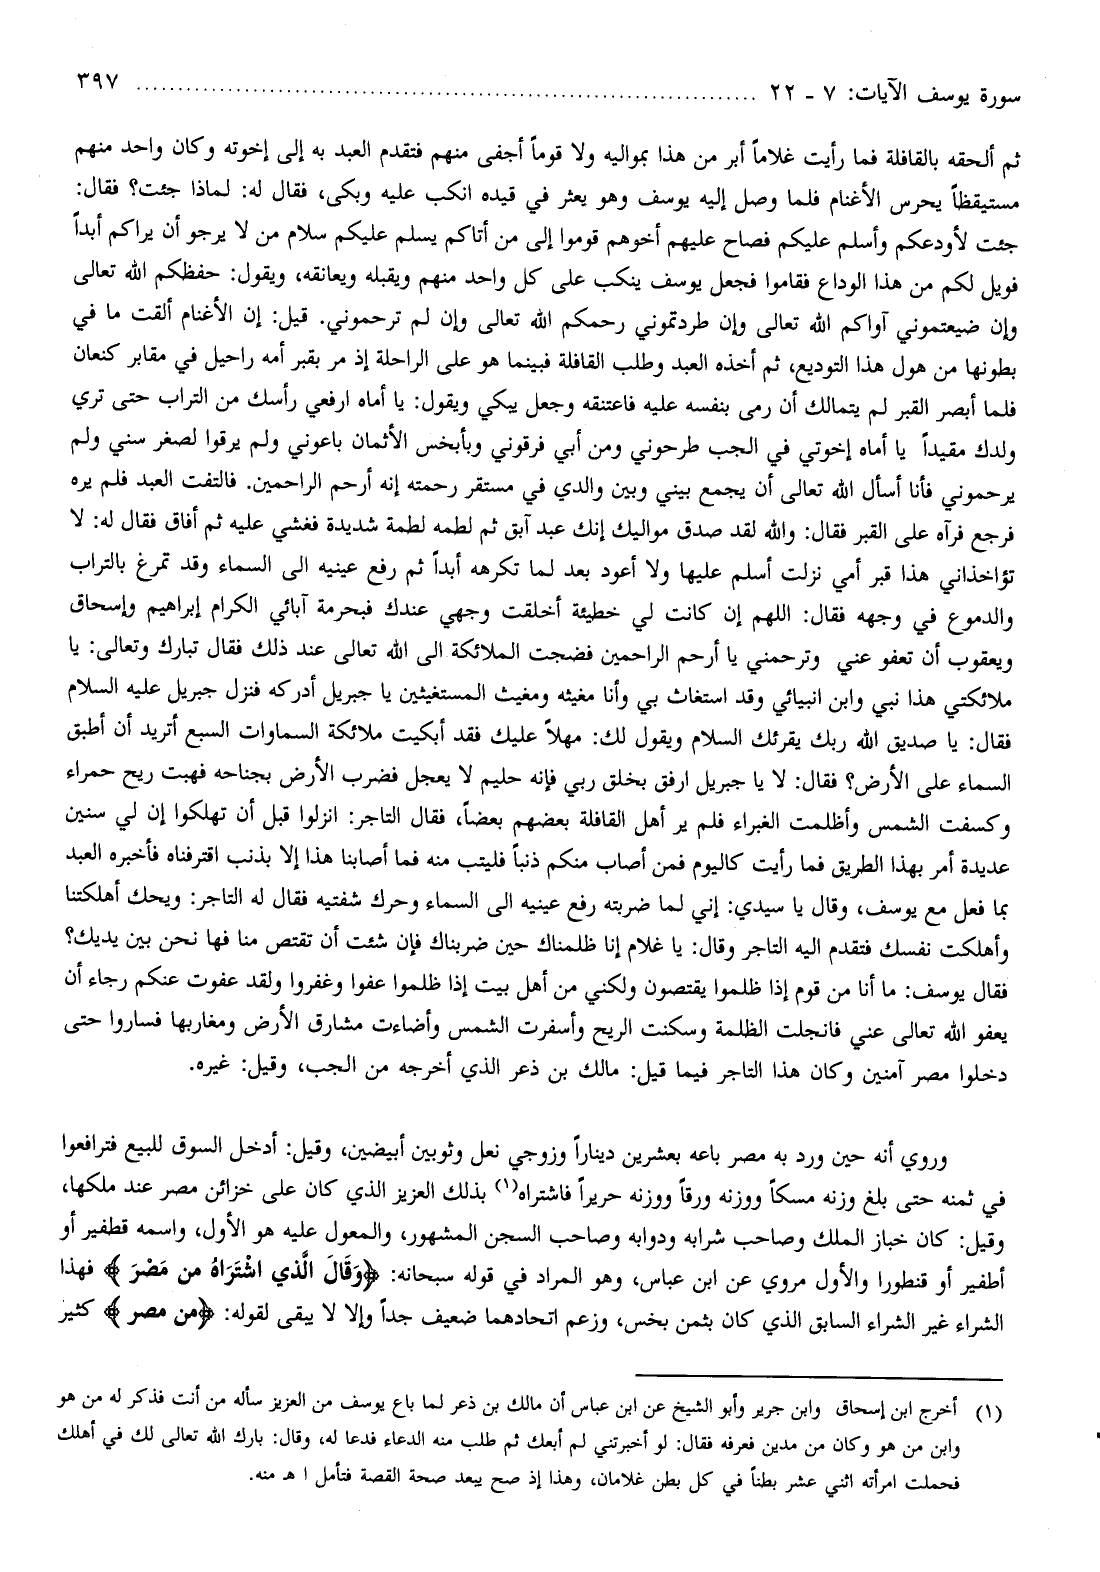 سورة يوسف الآيات: ٧ - ٢٢ ........................................................ ٣٩٧
ثم ألحقه بالقافلة فما رأيت غلاماً أبر من هذا بمواليه ولا قوماً أجفى منهم فتقدم العبد به إلى إخوته وكان واحد منهم
مستيقظاً يحرس الأغنام فلما وصل إليه يوسف وهو يعثر في قيده انكب عليه وبكى، فقال له: لماذا جئت؟ فقال:
جئت لأودعكم وأسلم عليكم فصاح عليهم أخوهم قوموا إلى من أتاكم يسلم عليكم سلام من لا يرجو أن يراكم أبداً
فويل لكم من هذا الوداع فقاموا فجعل يوسف ينكب على كل واحد منهم ويقبله ويعانقه، ويقول: حفظكم الله تعالى
وإن ضيعتموني آواكم الله تعالى وإن طردتموني رحمكم الله تعالى وإن لم ترحموني. قيل: إن الأغنام ألقت ما في
بطونها من هول هذا التوديع، ثم أخذه العبد وطلب القافلة فبينما هو على الراحلة إذ مر بقبر أمه راحيل في مقابر كنعان
فلما أبصر القبر لم يتمالك أن رمى بنفسه عليه فاعتنقه وجعل يبكي ويقول: يا أماه ارفعي رأسك من التراب حتى تري
ولدك مقيداً يا أماه إخوتي في الجب طرحوني ومن أبي فرقوني وبأبخس الأثمان باعوني ولم يرقوا لصغر سني ولم
يرحموني فأنا أسأل الله تعالى أن يجمع بيني وبين والدي في مستقر رحمته إنه أرحم الراحمين. فالتفت العبد فلم يره
فرجع فرآه على القبر فقال: والله لقد صدق مواليك إنك عبد آبق ثم لطمه لطمة شديدة فغشي عليه ثم أفاق فقال له: لا
تؤاخذاني هذا قبر أمي نزلت أسلم عليها ولا أعود بعد لما تكرهه أبداً ثم رفع عينيه الى السماء وقد تمرغ بالتراب
والدموع في وجهه فقال: اللهم إن كانت لي خطيئة أخلقت وجهي عندك فبحرمة آبائي الكرام إبراهيم وإسحاق
ويعقوب أن تعفو عني وترحمني يا أرحم الراحمين فضجت الملائكة الى الله تعالى عند ذلك فقال تبارك وتعالى: يا
ملائكتي هذا نبي وابن انبيائي وقد استغاث بي وأنا مغيثه ومغيث المستغيثين يا جبريل أدركه فنزل جبريل عليه السلام
فقال: يا صديق الله ربك يقرئك السلام ويقول لك: مهلاً عليك فقد أبكيت ملائكة السماوات السبع أتريد أن أطبق
السماء على الأرض؟ فقال: لا يا جبريل ارفق بخلق ربي فإنه حليم لا يعجل فضرب الأرض بجناحه فهبت ريح حمراء
وكسفت الشمس وأظلمت الغبراء فلم ير أهل القافلة بعضهم بعضاً، فقال التاجر: انزلوا قبل أن تهلكوا إن لي سنين
عديدة أمر بهذا الطريق فما رأيت كاليوم فمن أصاب منكم ذنباً فليتب منه فما أصابنا هذا إلا بذنب اقترفناه فأخبره العبد
بما فعل مع يوسف، وقال يا سيدي: إني لما ضربته رفع عينيه الى السماء وحرك شفتيه فقال له التاجر: ويحك أهلكتنا
وأهلكت نفسك فتقدم اليه التاجر وقال: يا غلام إنا ظلمناك حين ضربناك فإن شئت أن تقتص منا فها نحن بين يديك؟
فقال يوسف: ما أنا من قوم إذا ظلموا يقتصون ولكني من أهل بيت إذا ظلموا عفوا وغفروا ولقد عفوت عنكم رجاء أن
يعفو الله تعالى عني فانجلت الظلمة وسكنت الريح وأسفرت الشمس وأضاءت مشارق الأرض ومغاربها فساروا حتى
دخلوا مصر آمنين وكان هذا التاجر فيما قيل: مالك بن ذعر الذي أخرجه من الجب، وقيل: غيره.
وروي أنه حين ورد به مصر باعه بعشرين ديناراً وزوجي نعل وثوبين أبيضين، وقيل: أدخل السوق للبيع فترافعوا
في ثمنه حتى بلغ وزنه مسكاً ووزنه ورقاً ووزنه حريراً فاشتراه(١) بذلك العزيز الذي كان على خزائن مصر عند ملكها،
وقيل: كان خباز الملك وصاحب شرابه ودوابه وصاحب السجن المشهور، والمعول عليه هو الأول، واسمه قطفير أو
أطفير أو قنطورا والأول مروي عن ابن عباس، وهو المراد في قوله سبحانه: ﴿وَقَالَ الَّذي اشْتَرَاهُ من مَصْرَ﴾ فهذا
الشراء غير الشراء السابق الذي كان بثمن بخس، وزعم اتحادهما ضعيف جداً وإلا لا يبقى لقوله: ﴿من مصر﴾ كثير
(١) أخرج ابن إسحاق وابن جرير وأبو الشيخ عن ابن عباس أن مالك بن ذعر لما باع يوسف من العزيز سأله من أنت فذكر له من هو
وابن من هو وكان من مدين فعرفه فقال: لو أخبرتني لم أبعك ثم طلب منه الدعاء فدعا له، وقال: بارك الله تعالى لك في أهلك
فحملت امرأته اثني عشر بطناً في كل بطن غلامان، وهذا إذ صح يبعد صحة القصة فتأمل ا هـ منه.